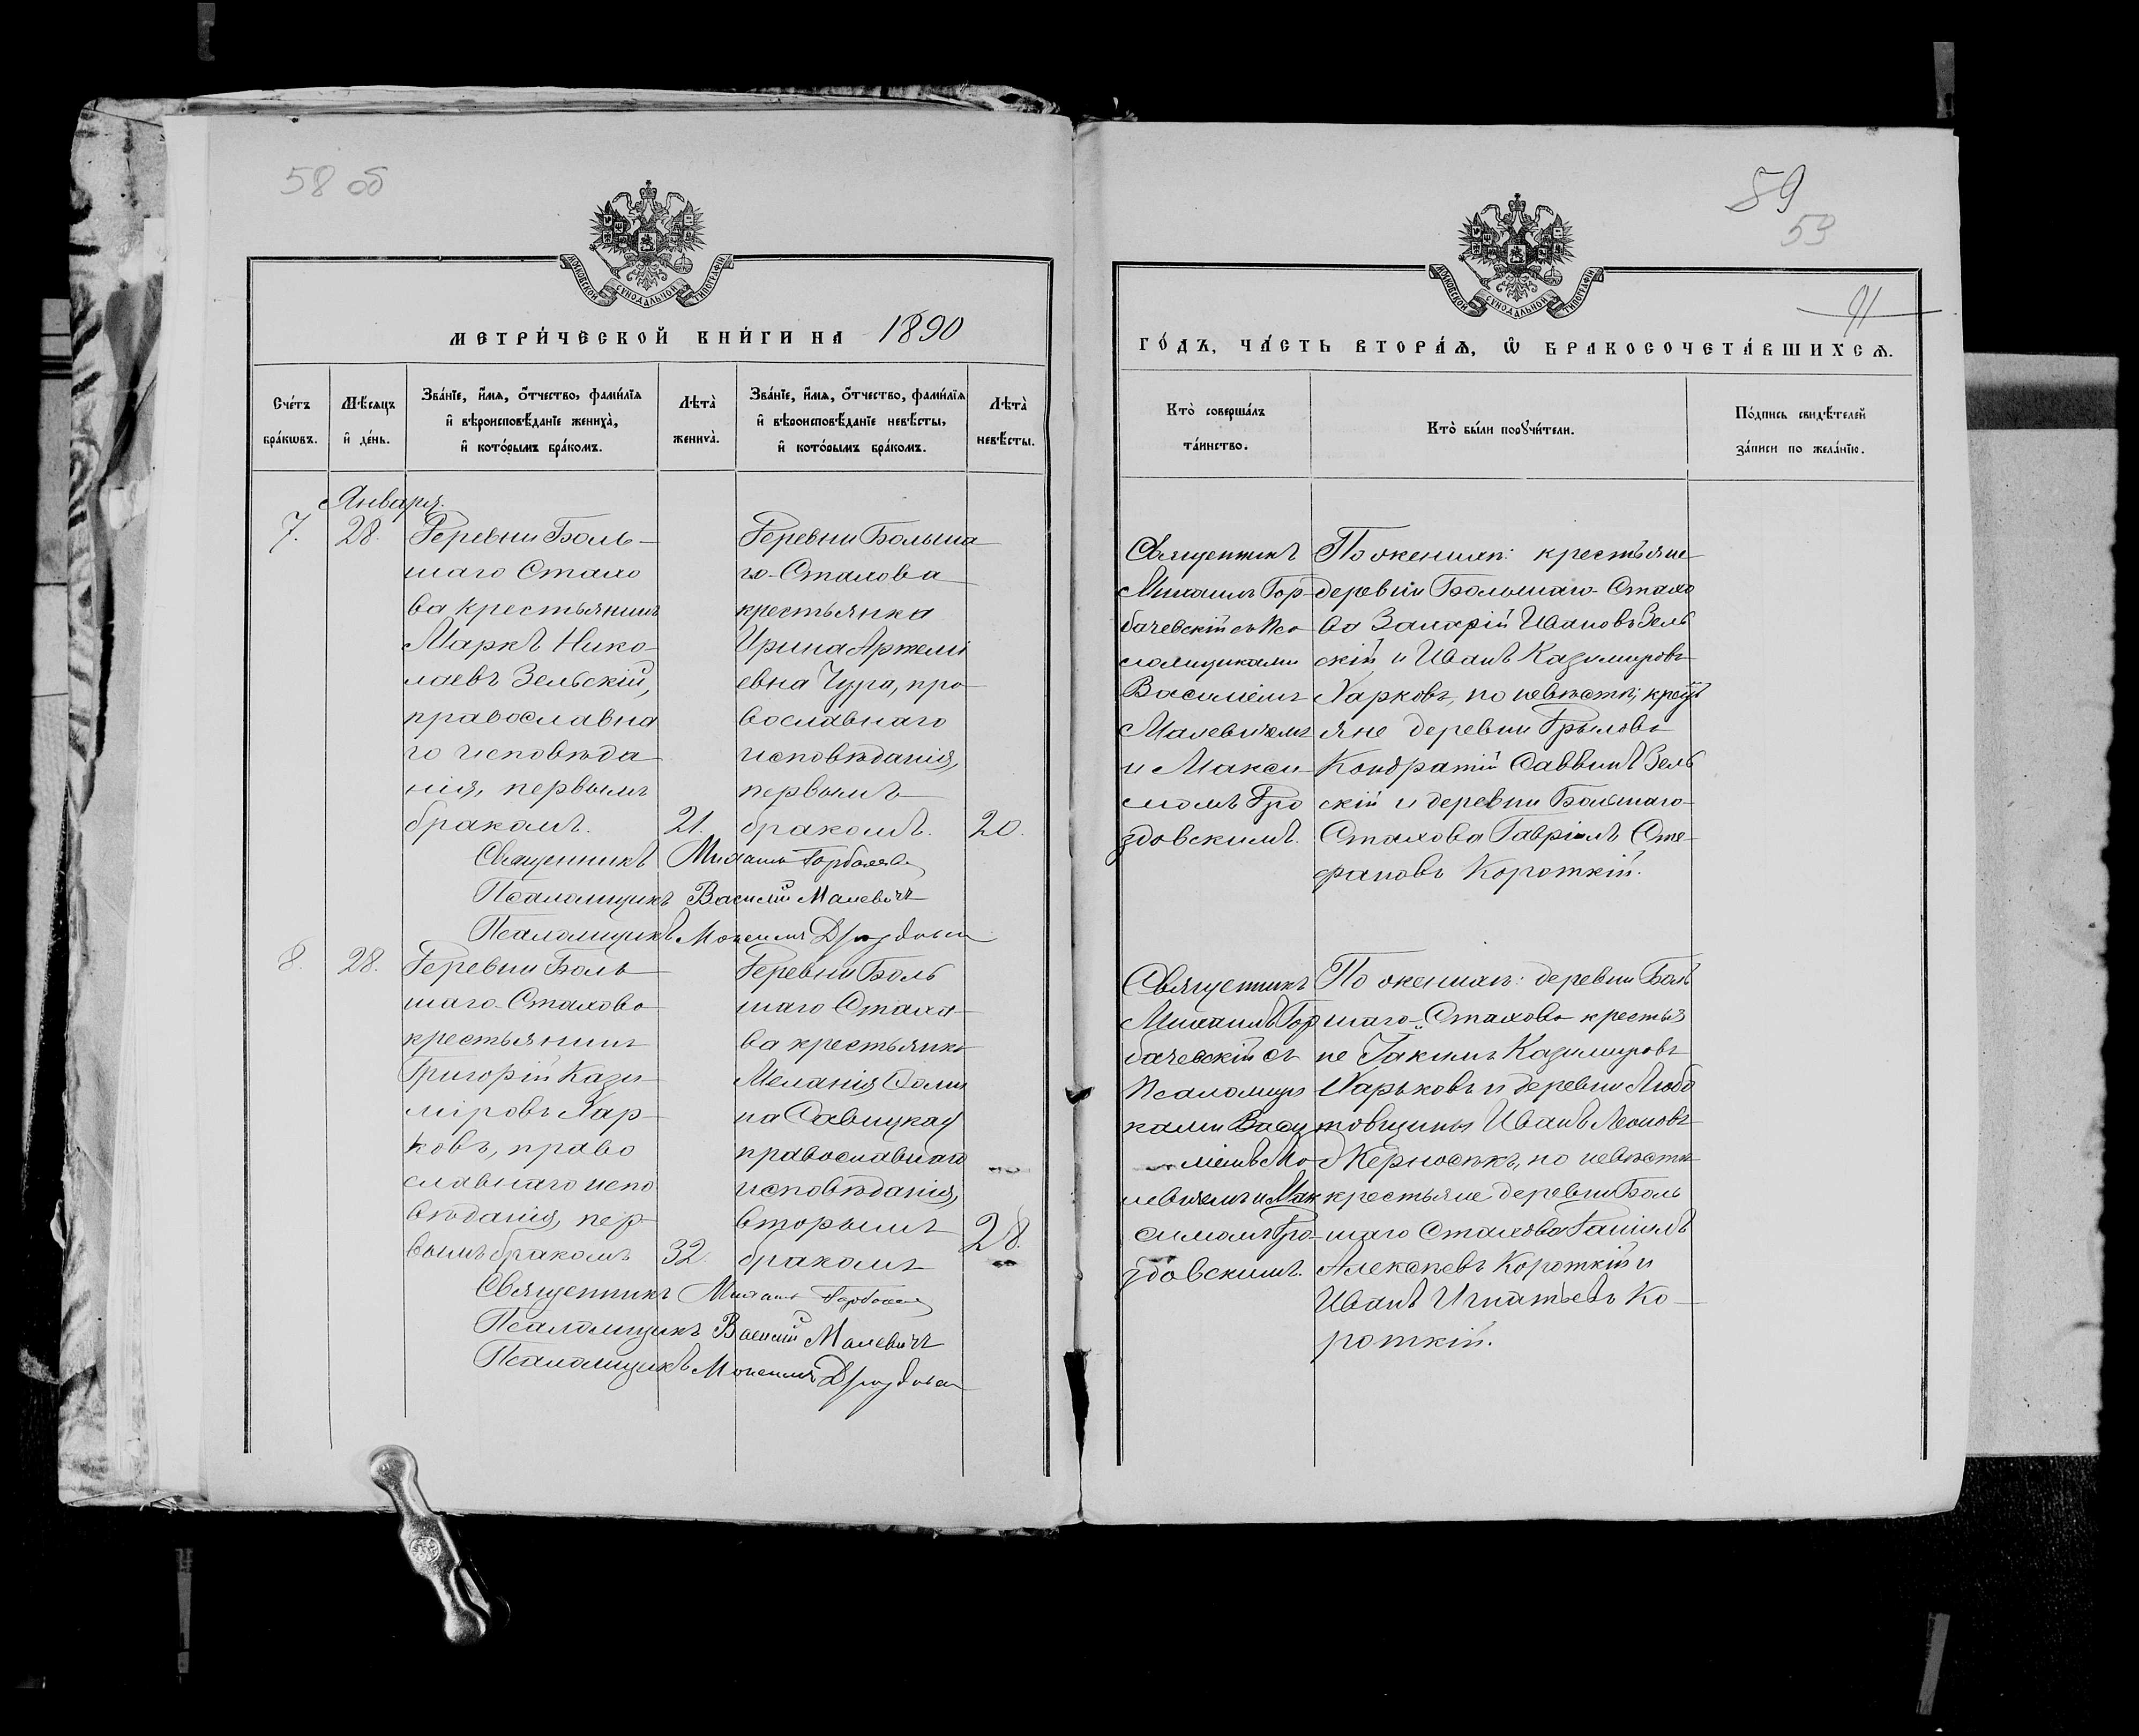 58 об
МОСКОВСКОЙ СУНОДАЛЬНОЙ ТИПОГРАФІИ
МЕТРИ́ЧЕСКОЙ КНИ́ГИ НА 1890
Сче́тъ бра́кѡвъ.
Мѣ́сяцъ и҆ де́нь.
Зва́нїе, и҆́мѧ, ѻ҆́тчество, фами́лїѧ и҆ вѣроисповѣ́данїе жениха̀, и҆ кото́рымъ бра́комъ.
Лѣта̀ жениха̀.
Зва́нїе, и҆́мѧ, ѻ҆́тчество, фами́лїѧ и҆ вѣроисповѣ́данїе невѣ́сты, и҆ кото́рымъ бра́комъ.
Лѣта̀ невѣ́сты.
Января.
7. 28.
Деревни Боль-
шаго Стахо
ва крестьянинъ
Маркъ Нико-
лаевъ Зельскій,
православна
го исповѣда
нія, первымъ
бракомъ. 21.
Деревни Больша
го-Стахова
крестьянка
Ирина Артемі
евна Чура, пра-
вославнаго
исповѣданія,
первымъ
бракомъ. 20.
Священникъ Михаилъ Горбачевск
Псаломщикъ Василій Малевичъ
Псаломщикъ Максимъ Дроздовск
8. 28.
Деревни Боль
шаго-Стахова
крестьянинъ
Григорій Кази-
міровъ Хар-
ковъ, право
славнаго испо
вѣданія, пер-
вымъ бракомъ 32.
Деревни Боль
шаго Стахо-
ва крестьянка
Меланія Ѳоми
на Савицкая
православнаго
исповѣданія,
вторымъ
бракомъ 28.
Священникъ Михаилъ Горбачевск
Псаломщикъ Василій Малевичъ
Псаломщикъ Максимъ Дроздовск
59
59
91
МОСКОВСКОЙ СУНОДАЛЬНОЙ ТИПОГРАФІИ
ГО́ДЪ, ЧА́СТЬ ВТОРА́Ѧ, Ѽ БРАКОСОЧЕТА́ВШИХСѦ.
Кто̀ соверша́лъ та́инство.
Кто̀ бы́ли порꙋчи́тели.
По́дпись свидѣ́телей за́писи по жела́нїю.
Священникъ
Михаилъ Гор-
бачевскій съ Пса
ломщиками
Василіемъ
Малевичемъ
и Макси-
момъ Дро
здовскимъ.
По женихѣ: крестьяне
деревни Большаго-Стахо
ва Захарій Ивановъ Зель
скій и Иванъ Казиміровъ
Харковъ, по невѣстѣ; кресть
яне деревни
Кондратій Саввинъ Зель
скій и деревни Большаго-
Стахова Гавріилъ Сте-
фановъ Короткій.
Священникъ
Михаилъ Гор
бачевскій съ
Псаломщи
ками Васи
ліемъ Ма-
левичемъ и Мак
симомъ Дро-
здовскимъ.
По женихѣ: деревни Боль
шаго-Стахова крестья
не Іакимъ Казиміровъ
Харьковъ и деревни Любо
товщины Иванъ Леоновъ
по невѣстѣ
крестьяне деревни Боль
шаго Стахова Даніилъ
Алексѣевъ Короткій и
Иванъ Игнатьевъ Ко-
роткій.